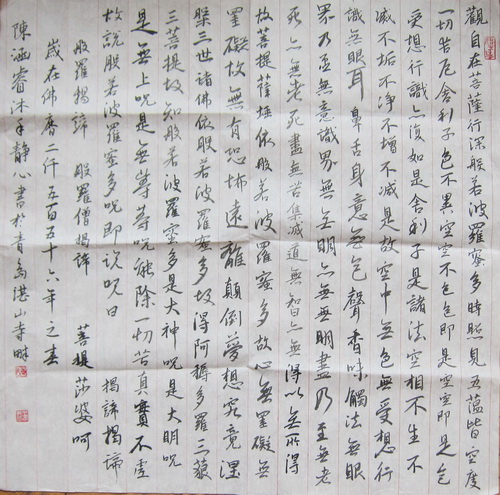 觀自在菩薩行深般若波羅蜜多時照見五蘊皆空度
一切苦厄舍利子色不異空空不色色即是空空即是色
受想行識亦復如是舍利子是諸法空相不生不
滅不垢不净不增不減是故空中無色無受想行
識無眼耳鼻舌身意無色聲香味觸法無眼
界乃至無意識界無無明亦無無明盡乃至無老
死亦無老死盡無苦集滅道無智亦無得以無所得
故菩提薩埵依般若波羅蜜多故心無罣礙無
罣礙故無有恐怖遠離顛倒夢想究竟涅
槃三世諸佛依般若波羅蜜多故得阿耨多羅三藐
三菩提故知般若波羅蜜多是大神咒是大明咒
是無上咒是無等等咒能除一切苦真實不虛
故說般若波羅蜜多咒即說咒曰 揭諦揭諦
般羅揭諦 般羅僧揭諦 菩提莎婆呵
歲在佛曆二仟五百五十六年之春
陳涵睿沐手静心書於青島湛山寺畔